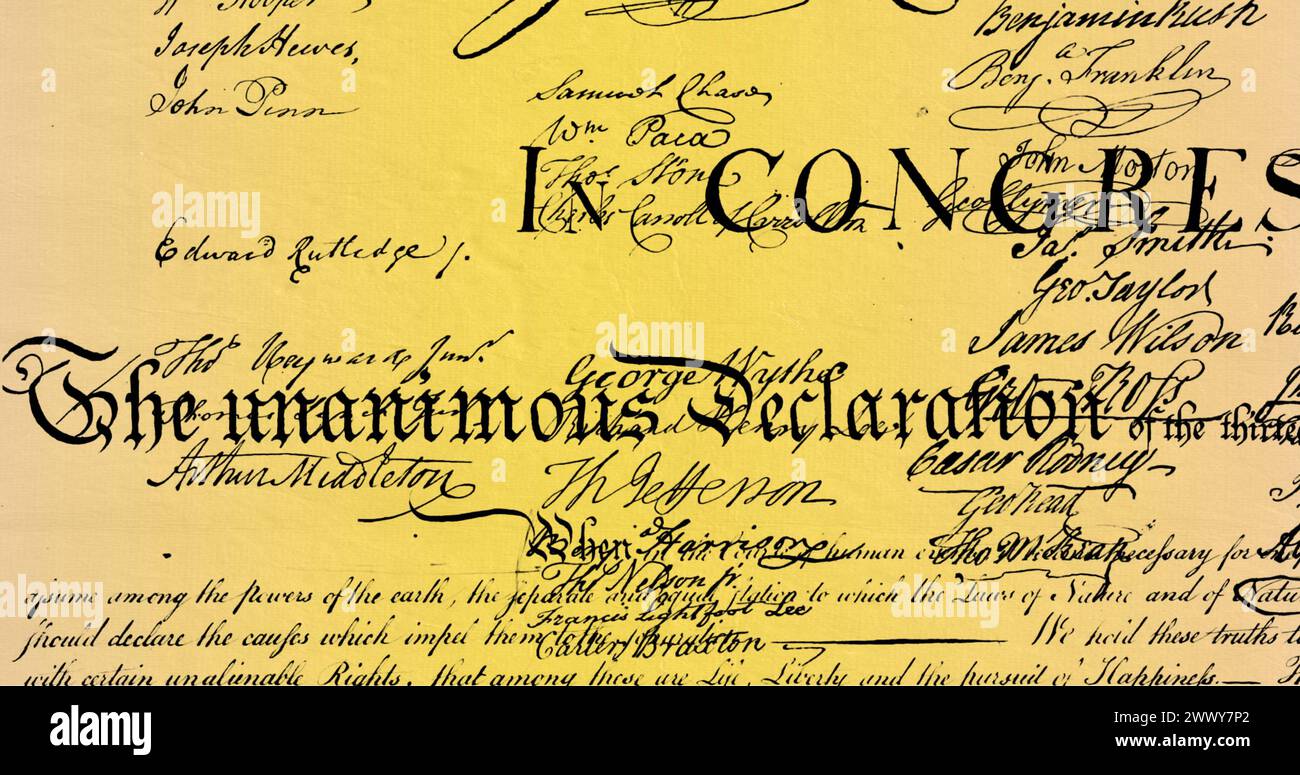 Joseph Hewes,
John Penn
Edward Rutledge /.
Tho.s Heyward Jun.r
Arthur Middleton
Samuel Chase
W.m Paca
Tho.s Stone
Charles Carroll of Carrollton
George Wythe
Richard Henry Lee
Th Jefferson
Harrison
Tho.s Nelson jr.
Francis Lightfoot Lee
Carter Braxton
Benjamin Rush
Benj.a Franklin
John Morton
Geo Clymer
Ja.s Smith.
Geo. Taylor
James Wilson
Geo. Ross
Caesar Rodney
Geo Read
Tho M:Kean
IN CONGRES
The unanimous Declaration of the thirtee
When human necessary for
assume among the powers of the earth, the separate and equal station to which the Laws of Nature and of Natu
should declare the causes which impel them to the We hold these truths to
with certain unalienable Rights, that among these are Life, Liberty and the pursuit of Happiness.—
alamy
Image ID: 2WWY7P2
www.alamy.com